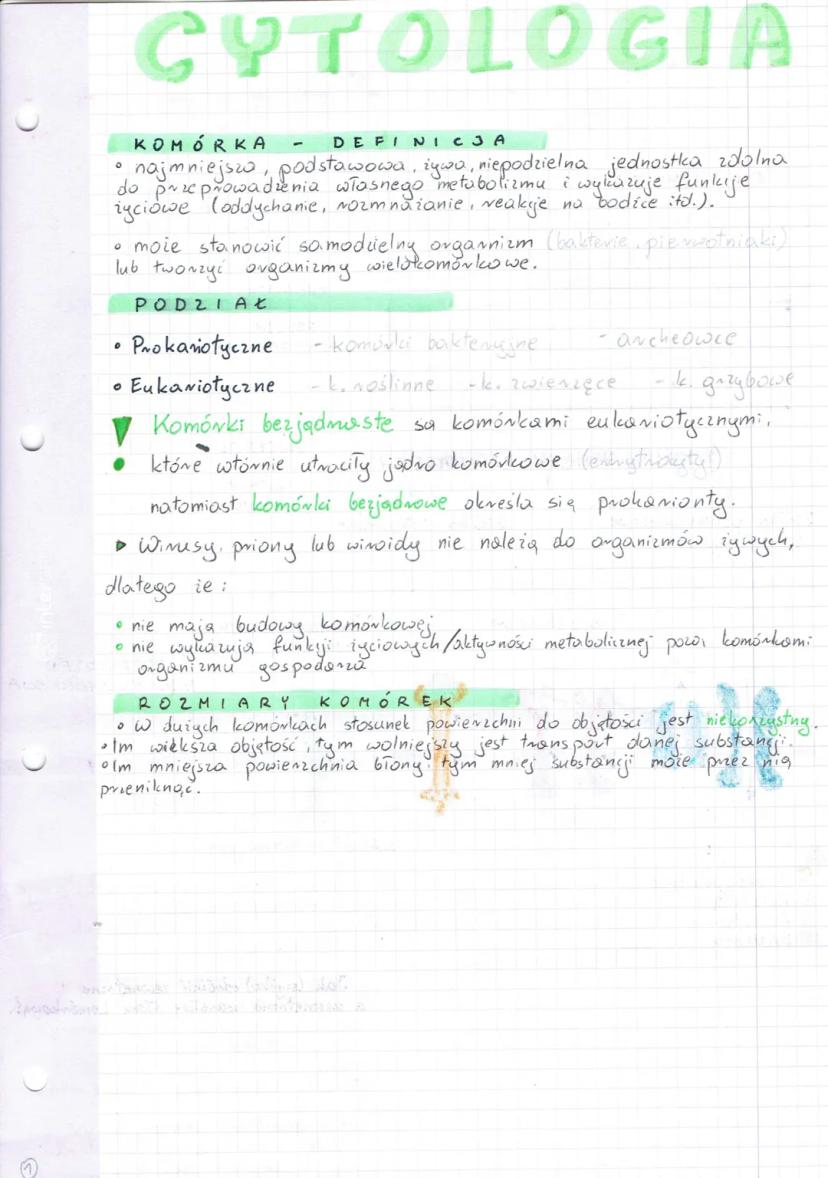 CYTOLOGIA
KOMÓRKA - DEFINICJA
• najmniejsza, podstawowa, żywa, niepodzielna jednostka zdolna
do przeprowadzenia własnego metabolizmu i wykazuje funkcje
życiowe (oddychanie, rozmnażanie, reakcje na bodźce itd.).
• może stanowić samodzielny organizm (bakterie, pierwotniaki)
lub tworzyć organizmy wielokomórkowe.
PODZIAŁ
• Prokariotyczne - komórki bakteryjne - archeowce
• Eukariotyczne - k. roślinne - k. zwierzęce - k. grzybowe
Komórki bezjądrzaste są komórkami eukariotycznymi,
które wtórnie utraciły jądro komórkowe (erytrocyty!)
natomiast komórki bezjądrowe określa się prokarionty.
▶ Wirusy, priony lub wiroidy nie należą do organizmów żywych,
dlatego że:
• nie mają budowy komórkowej
• nie wykazują funkcji życiowych/aktywności metabolicznej poza komórkami
organizmu gospodarza
ROZMIARY KOMÓREK
• W dużych komórkach stosunek powierzchni do objętości jest niekorzystny.
• Im większa objętość, tym wolniejszy jest transport danej substancji.
• Im mniejsza powierzchnia błony, tym mniej substancji może przez nią
przeniknąć.
1